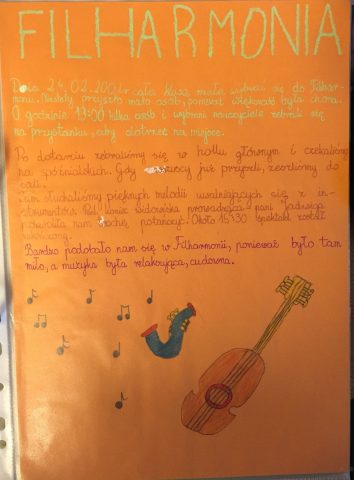 FILHARMONIA
Dnia 24.02.2001r cała klasa miała wybrać się do Filhar-
monii. Niestety przyszło mało osób, ponieważ większość była chora.
O godzinie 13:00 kilka osób i wybrani nauczyciele zebrali się
na przystanku, aby dotrzeć na miejsce.
Po dotarciu zebraliśmy się w hollu głównym i czekaliśmy
na spóźnialskich. Gdy wszyscy już przyszli, weszliśmy do
sali.
Tam słuchaliśmy pięknych melodii uwalniających się z in-
strumentów. Pod koniec widowiska prowadząca pani Jadwiga
pozwoliła nam trochę potańczyć. Około 15:30 spektakl został
zakończony.
Bardzo podobało nam się w Filharmonii, ponieważ było tam
miło, a muzyka była relaksująca, cudowna.